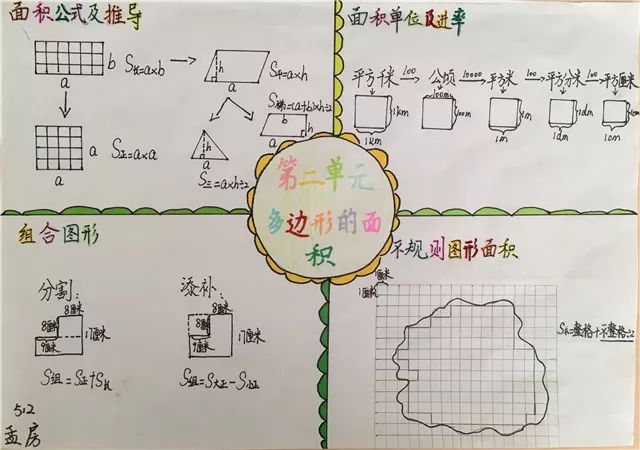 面积公式及推导
b
a
S长=a×b
h
a
S平=a×h
a
a
S正=a×a
h
a
S三=a×h÷2
S梯=(a+b)×h÷2
b
h
a
面积单位及进率
平方千米 100 公顷 10000 平方米 100 平方分米 100 平方厘米
1km
1km
100m
100m
1m
1m
1dm
1dm
1cm
1cm
第二单元
多边形的面
积
组合图形
分割:
8厘米
8厘米
9厘米
17厘米
S组=S正+S长
添补:
8厘米
8厘米
9厘米
17厘米
S组=S大正-S小正
不规则图形面积
1厘米
1厘米
S≈整格+不整格÷2
512
孟房